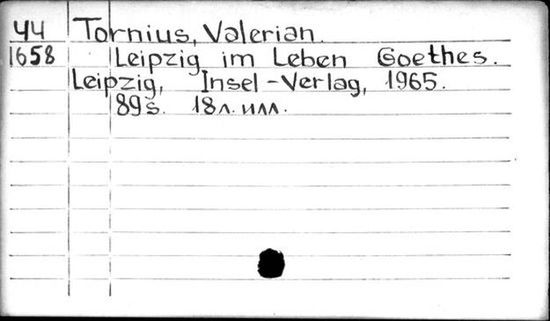 ЧЧ Tornius, Valerian.
1658 Leipzig im Leben Goethes.
Leipzig, Insel-Verlag, 1965.
89s. 18л. илл.